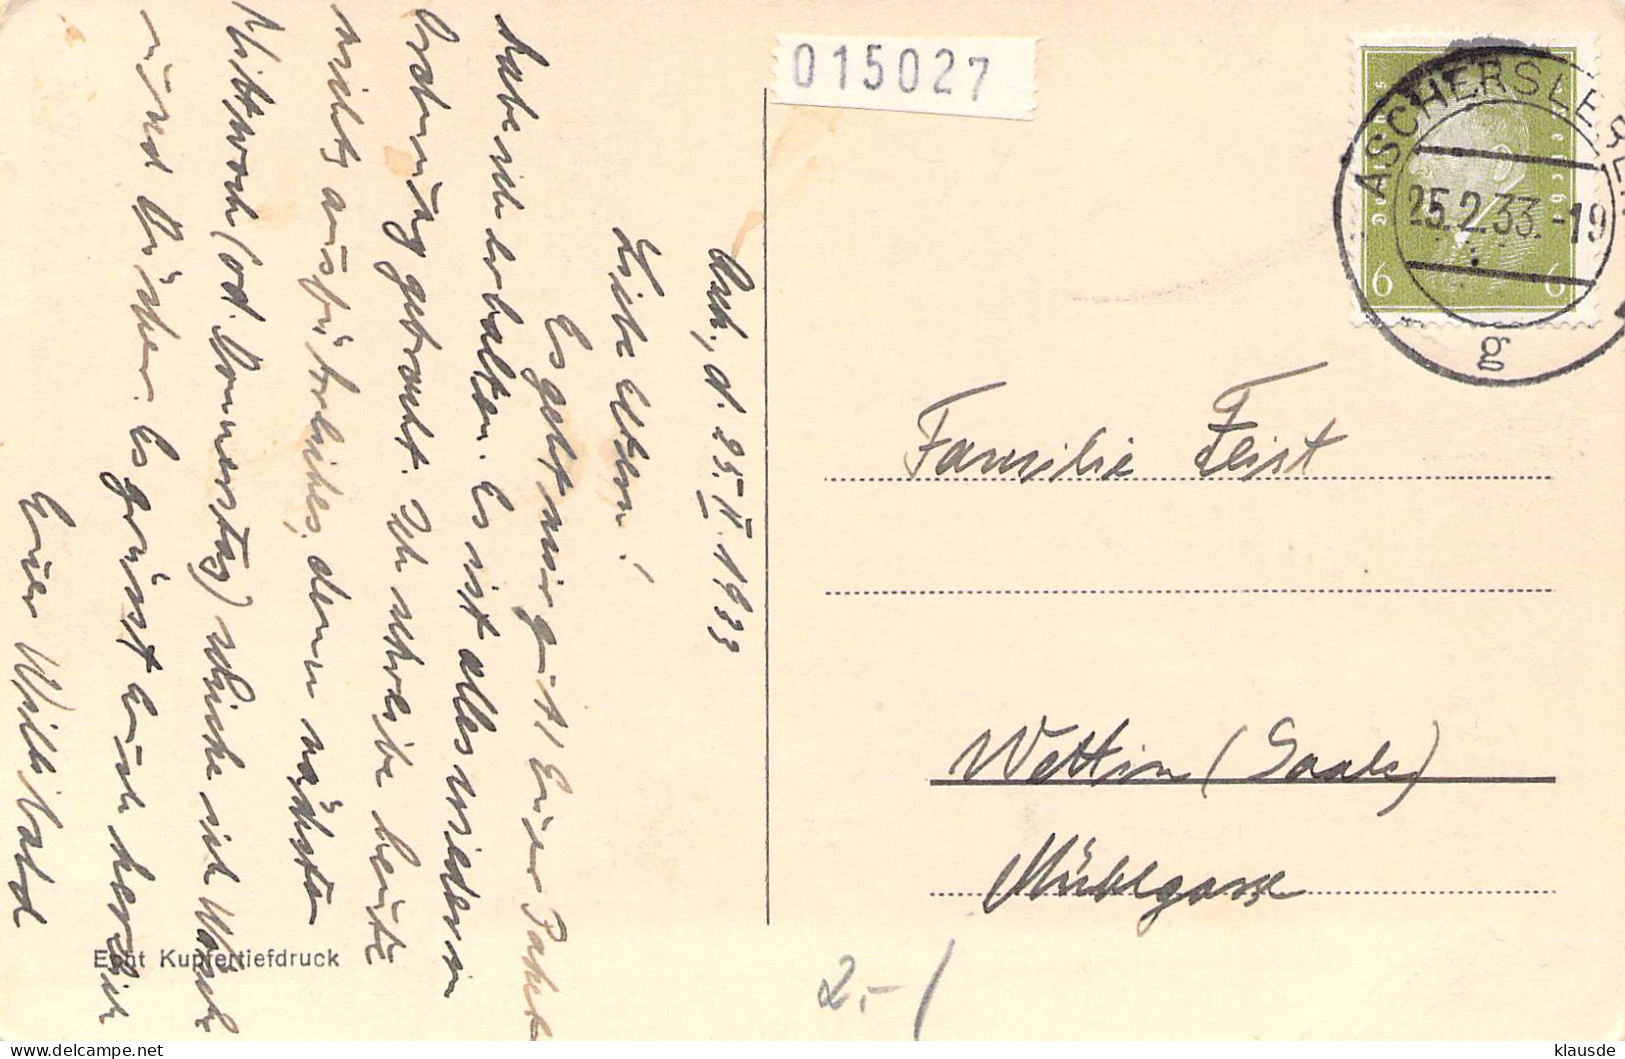 015027
ASCHERSLEBEN
25.2.33.-19
g
Deutsches Reich
6 6
Asch, d. 25. II. 1933
Liebe Eltern!
Es geht mir gut! Euer Paket
habe ich erhalten. Es ist alles wieder in
Ordnung gebracht. Ich schreibe heute
nichts ausführliches, denn nächsten
Mittwoch (od. Donnerstag) schicke ich Wäsche
und Bücher. Es grüsst Euch herzlich
Euer Willibald
Familie Feist
Wettin (Saale)
Mühlgasse
Echt Kupfertiefdruck
2.-/
klausde